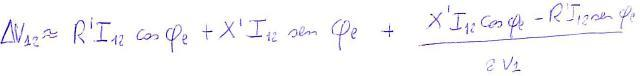 ΔV₁₂ ≈ R' I₁₂ cos φe + X' I₁₂ sen φe + (X' I₁₂ cos φe - R' I₁₂ sen φe) / 2 V₁